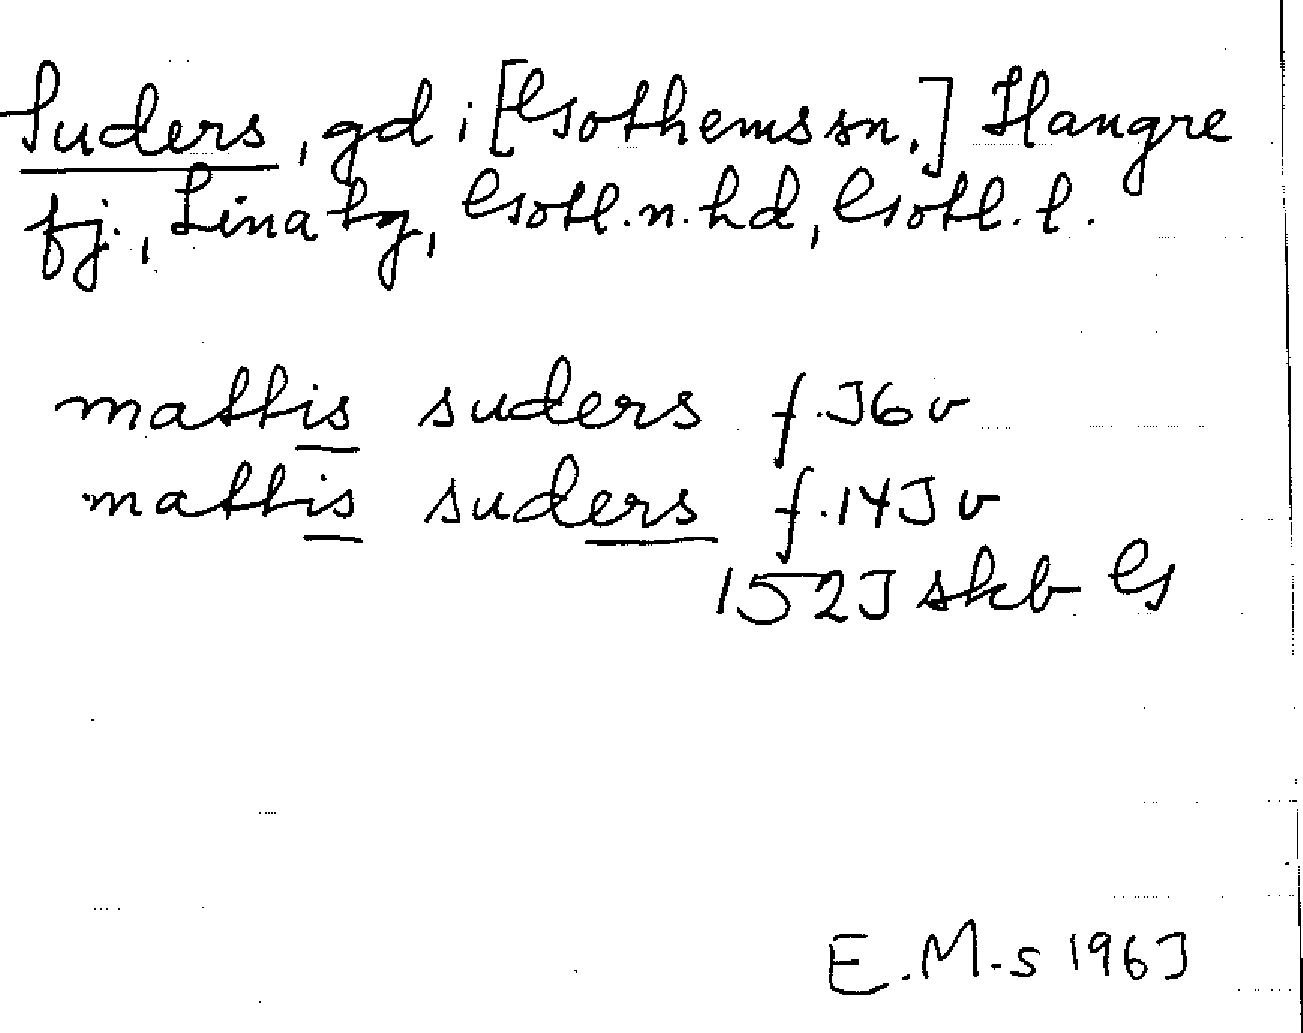 Suders, gd i [Gothems sn.] Hangre
fj., Lina tg, Gotl. n. hd, Gotl. l.
mattis suders f. 36 v
mattis suders f. 143 v
1523 skb G
E. M-s 1963